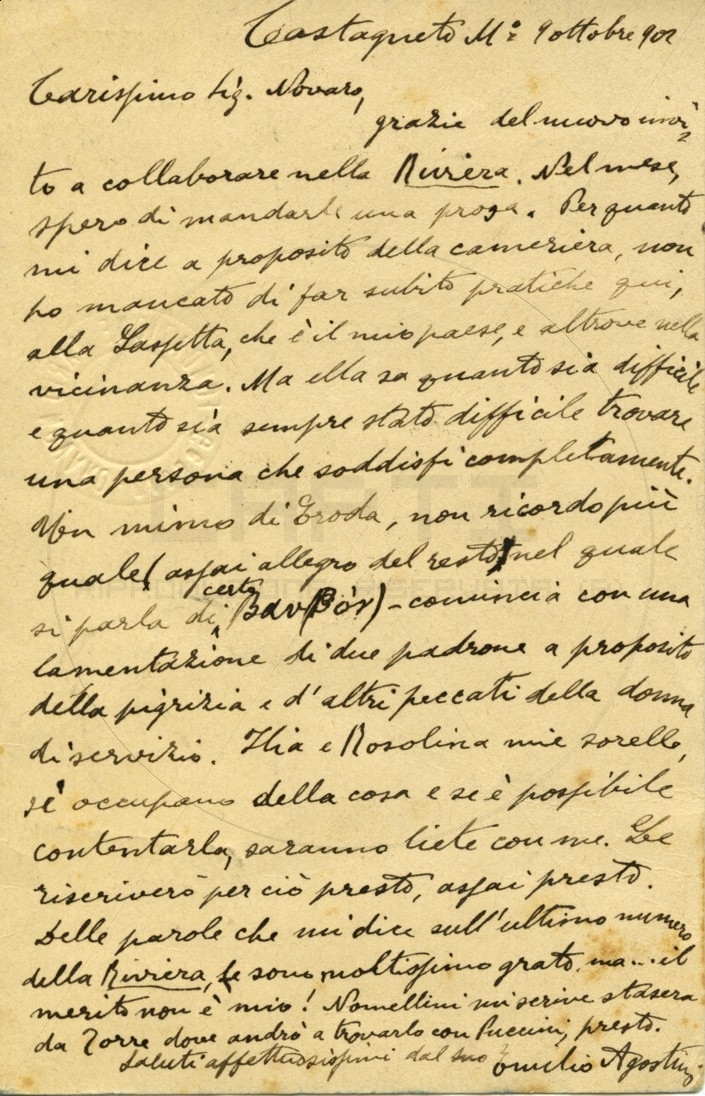 Castagneto Mº 9 ottobre 902
Carissimo Sig. Novaro,
grazie del nuovo invi=
to a collaborare nella Riviera. Nel mese,
spero di mandarle una prosa. Per quanto
mi dice a proposito della cameriera, non
ho mancato di far subito pratiche qui,
alla Sassetta, che è il mio paese, e altrove nella
vicinanza. Ma ella sa quanto sia difficile
e quanto sia sempre stato difficile trovare
una persona che soddisfi completamente.
Un mimo di Eroda, non ricordo più
quale (assai allegro del resto) nel quale
si parla di certo - comincia con una
lamentazione di due padrone a proposito
della pigrizia e d'altri peccati della donna
di servizio. Ilia e Rosolina mie sorelle,
si occupano della cosa e se è possibile
contentarla, saranno liete con me. Le
riscriverò per ciò presto, assai presto.
Delle parole che mi dice sull'ultimo numero
della Riviera, le sono moltissimo grato, ma... il
merito non è mio! Nomellini mi scrive stasera
da Torre dove andrò a trovarlo con Puccini, presto.
Saluti affettuosissimi dal suo Emilio Agostini